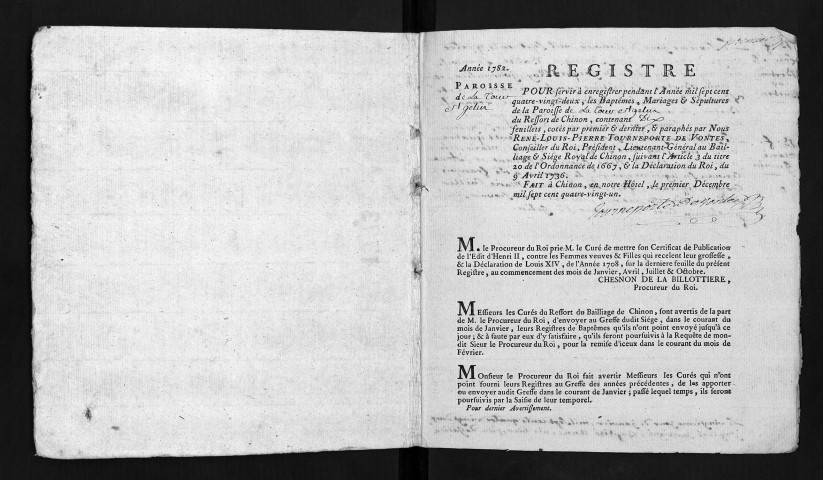 Année 1782.
PAROISSE
de La Tour
St Gelin
REGISTRE
POUR servir à enregistrer pendant l'Année mil sept cent
quatre-vingt-deux, les Baptêmes, Mariages & Sépultures
de la Paroisse de La Tour St Gelin
du Ressort de Chinon, contenant Dix
feuillets, cotés par premier & dernier, & paraphés par Nous
RENÉ-LOUIS-PIERRE TOURNEPORTE DE VONTES,
Conseiller du Roi, Président, Lieutenant-Général au Bail-
liage & Siége Royal de Chinon, suivant l'Article 3 du titre
20 de l'Ordonnance de 1667, & la Déclaration du Roi, du
9 Avril 1736.
FAIT à Chinon, en notre Hôtel, le premier Décembre
mil sept cent quatre-vingt-un.
Tourneporte De Vontes
M. le Procureur du Roi prie M. le Curé de mettre son Certificat de Publication
de l'Edit d'Henri II, contre les Femmes veuves & Filles qui recelent leur grossesse,
& la Déclaration de Louis XIV, de l'Année 1708, sur la derniere feuille du présent
Registre, au commencement des mois de Janvier, Avril, Juillet & Octobre.
CHESNON DE LA BILLOTTIERE,
Procureur du Roi.
Messieurs les Curés du Ressort du Bailliage de Chinon, sont avertis de la part
de M. le Procureur du Roi, d'envoyer au Greffe dudit Siége, dans le courant du
mois de Janvier, leurs Registres de Baptêmes qu'ils n'ont point envoyé jusqu'à ce
jour; & à faute par eux d'y satisfaire, qu'ils seront poursuivis à la Requête de mon-
dit Sieur le Procureur du Roi, pour la remise d'iceux dans le courant du mois de
Février.
Monsieur le Procureur du Roi fait avertir Messieurs les Curés qui n'ont
point fourni leurs Registres au Greffe des années précédentes, de les apporter
ou envoyer audit Greffe dans le courant de Janvier; passé lequel temps, ils seront
poursuivis par la Saisie de leur temporel.
Pour dernier Avertissement.